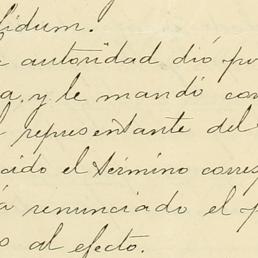 fidum.
autoridad dió po
a, y le mandó con
representante del
cido el término corres
á renunciado el p
o al efecto.